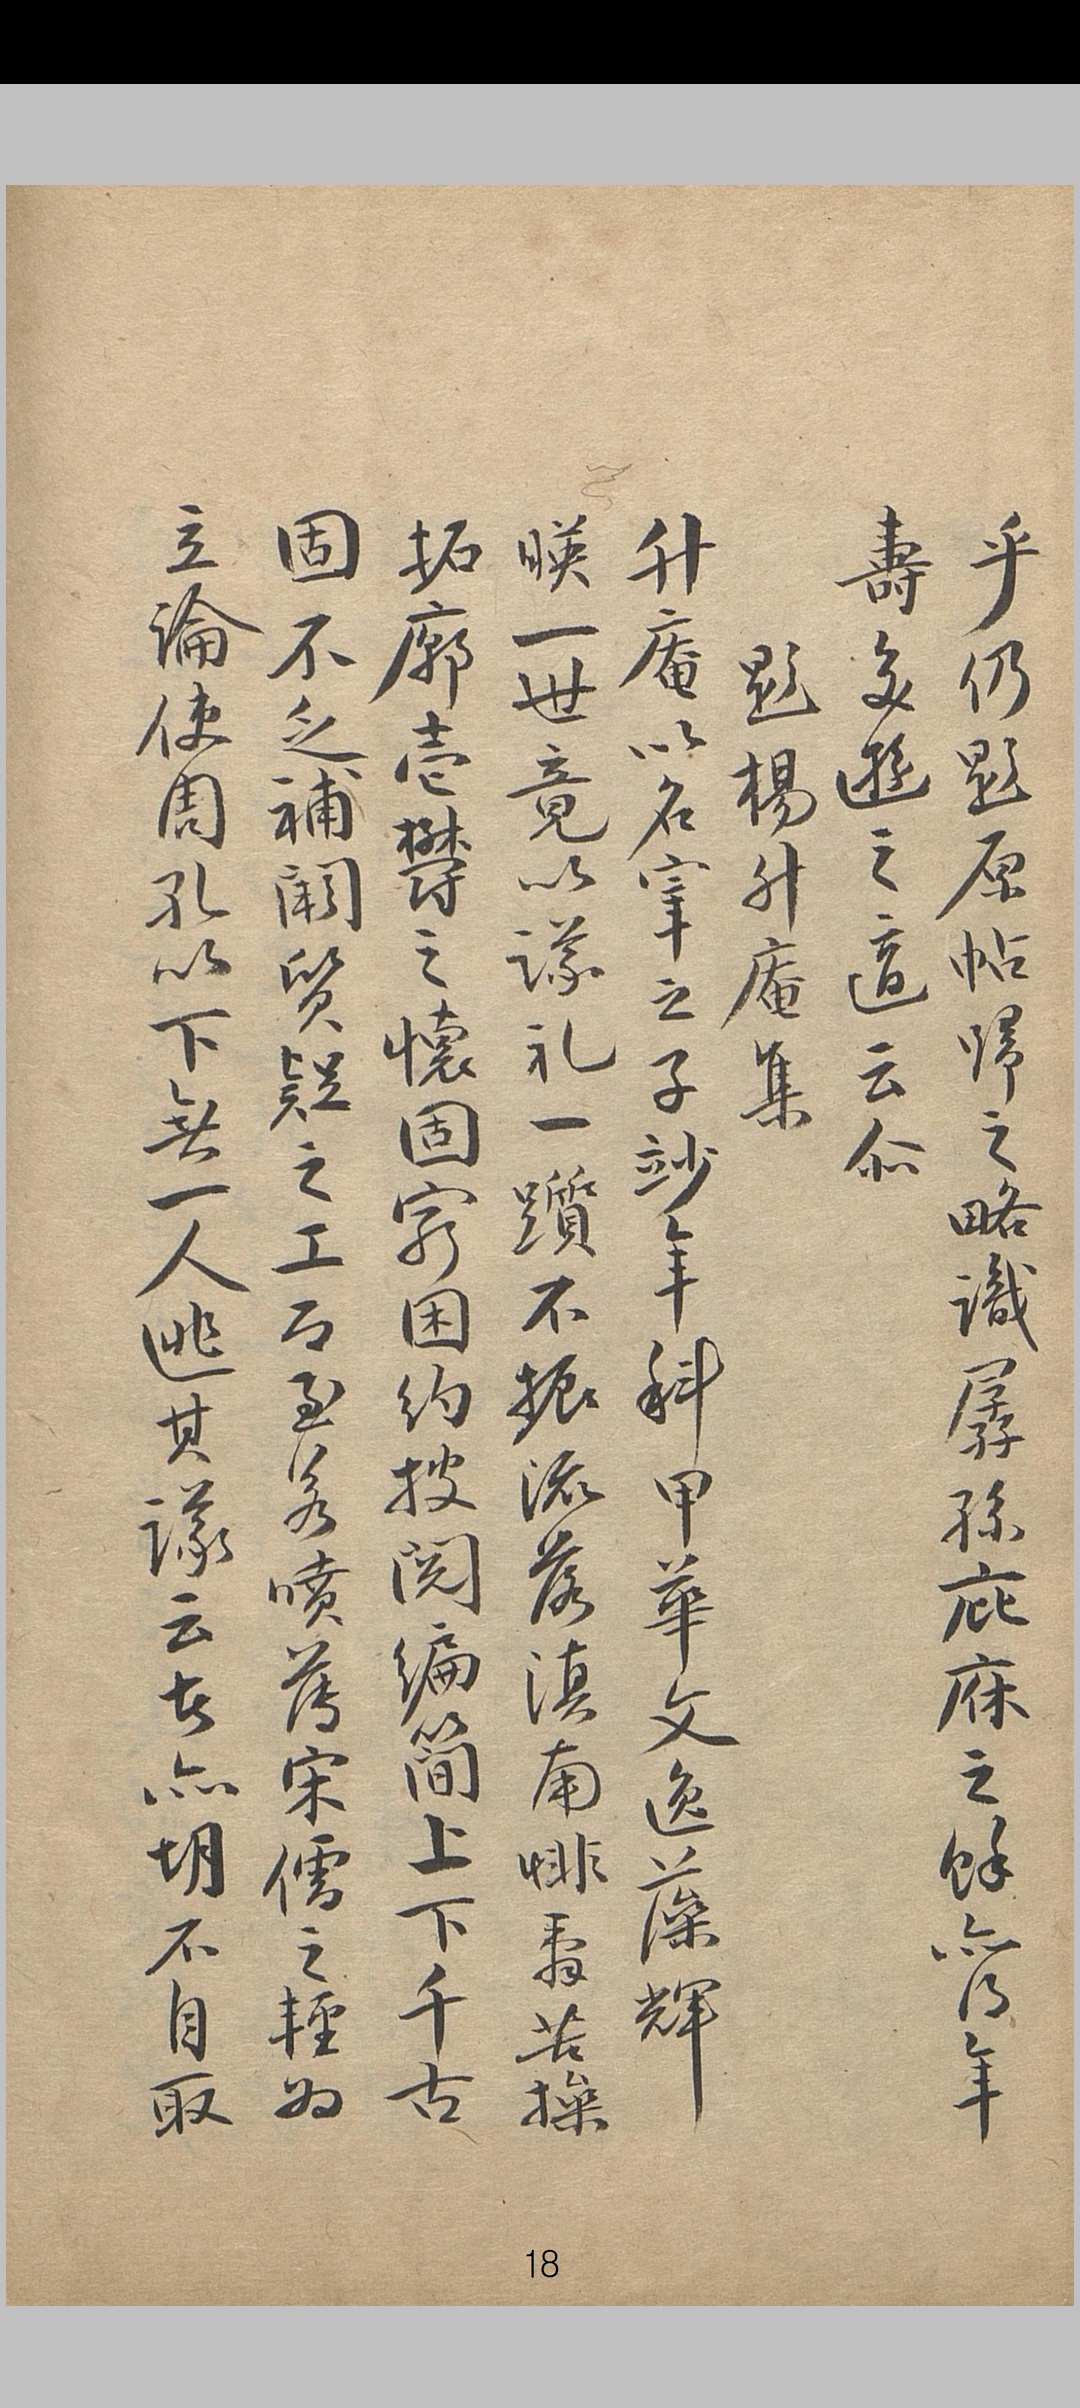 乎仍題原帖歸之略識孱孫庇庥之餘亦得年
壽多遊之適云尒
題楊升庵集
升庵以名宰之子妙年科甲華文逸藻輝
暎一世竟以議礼一躓不振流落滇南悱苦操
拓廓壹欝之懷固窮困約披閱編簡上下千古
固不乏補闕質疑之工而至若噴薄宋儒之輕為
立論使周孔以下無一人逃其議云者亦胡不自取
18